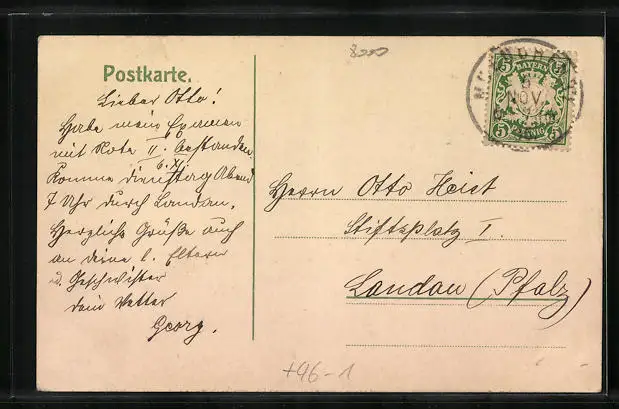 8000
Postkarte.
Lieber Otto!
Habe mein Examen
mit Note II. bestanden.
6. XI.
Komme dienstag Abend
7 Uhr durch Landau.
Herzliche Grüße auch
an deine l. Eltern
u. Geschwister
dein Vetter
Georg.
5 BAYERN 5
5 PFENNIG 5
NOV.
Herrn Otto Heist
Stiftsplatz I.
Landau (Pfalz)
+96-1